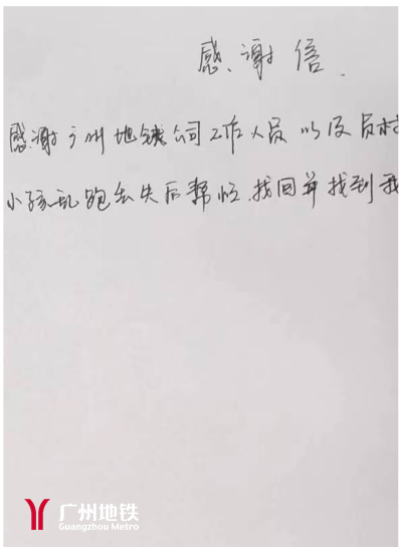 感谢信
感谢广州地铁公司工作人员以及员村
小孩乱跑丢失后帮忙.找回并找到我
广州地铁
Guangzhou Metro